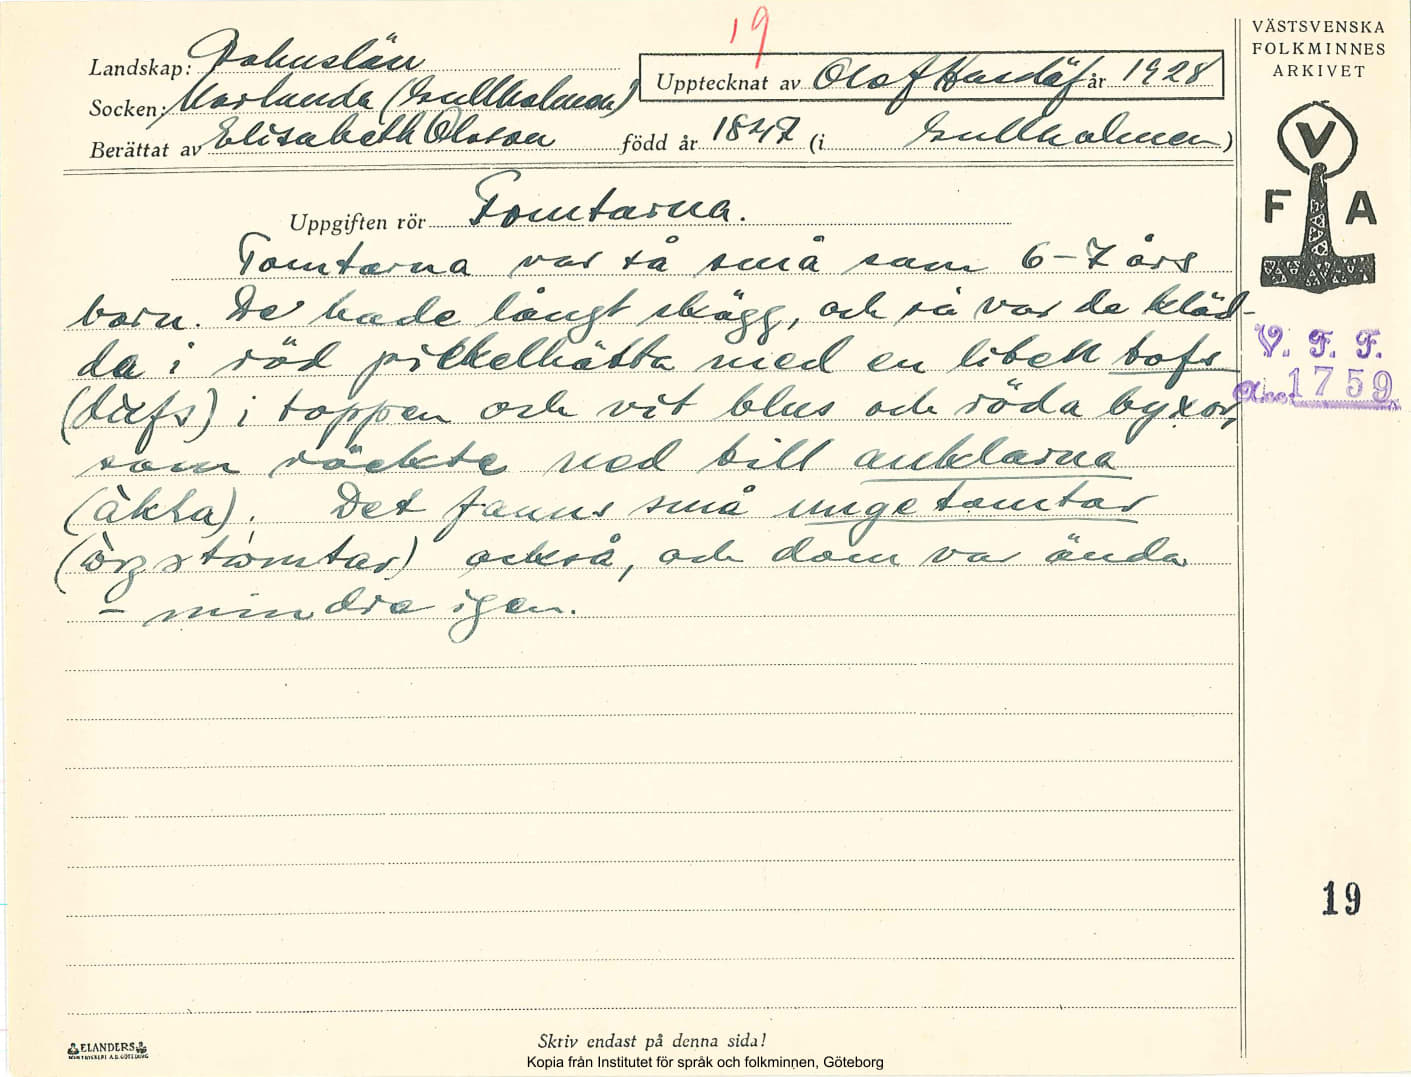 19
VÄSTSVENSKA
FOLKMINNES
ARKIVET
Landskap: Bohuslän
Upptecknat av Olof Hasslöf år 1928
Socken: Morlanda (Gullholmen)
Berättat av Elisabeth Olsson född år 1847 (i Gullholmen)
V
F A
Uppgiften rör Tomtarna.
Tomtarna var så små som 6-7 års
barn. De hade långt skägg, och så var de kläd-
da i röd pikkelhätta med en liten tofs
(tufs) i toppen och vit blus och röda byxor,
som räckte ned till anklarna
(åkta). Det fanns små unge tomtar
också, och dom var ända
- mindre igen.
V. F. F.
Acc. 1759
19
ELANDERS
Skriv endast på denna sida!
Kopia från Institutet för språk och folkminnen, Göteborg